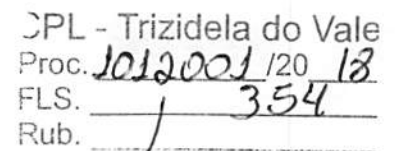 CPL - Trizidela do Vale
Proc. 1012001 /20 18
FLS. 354
Rub.